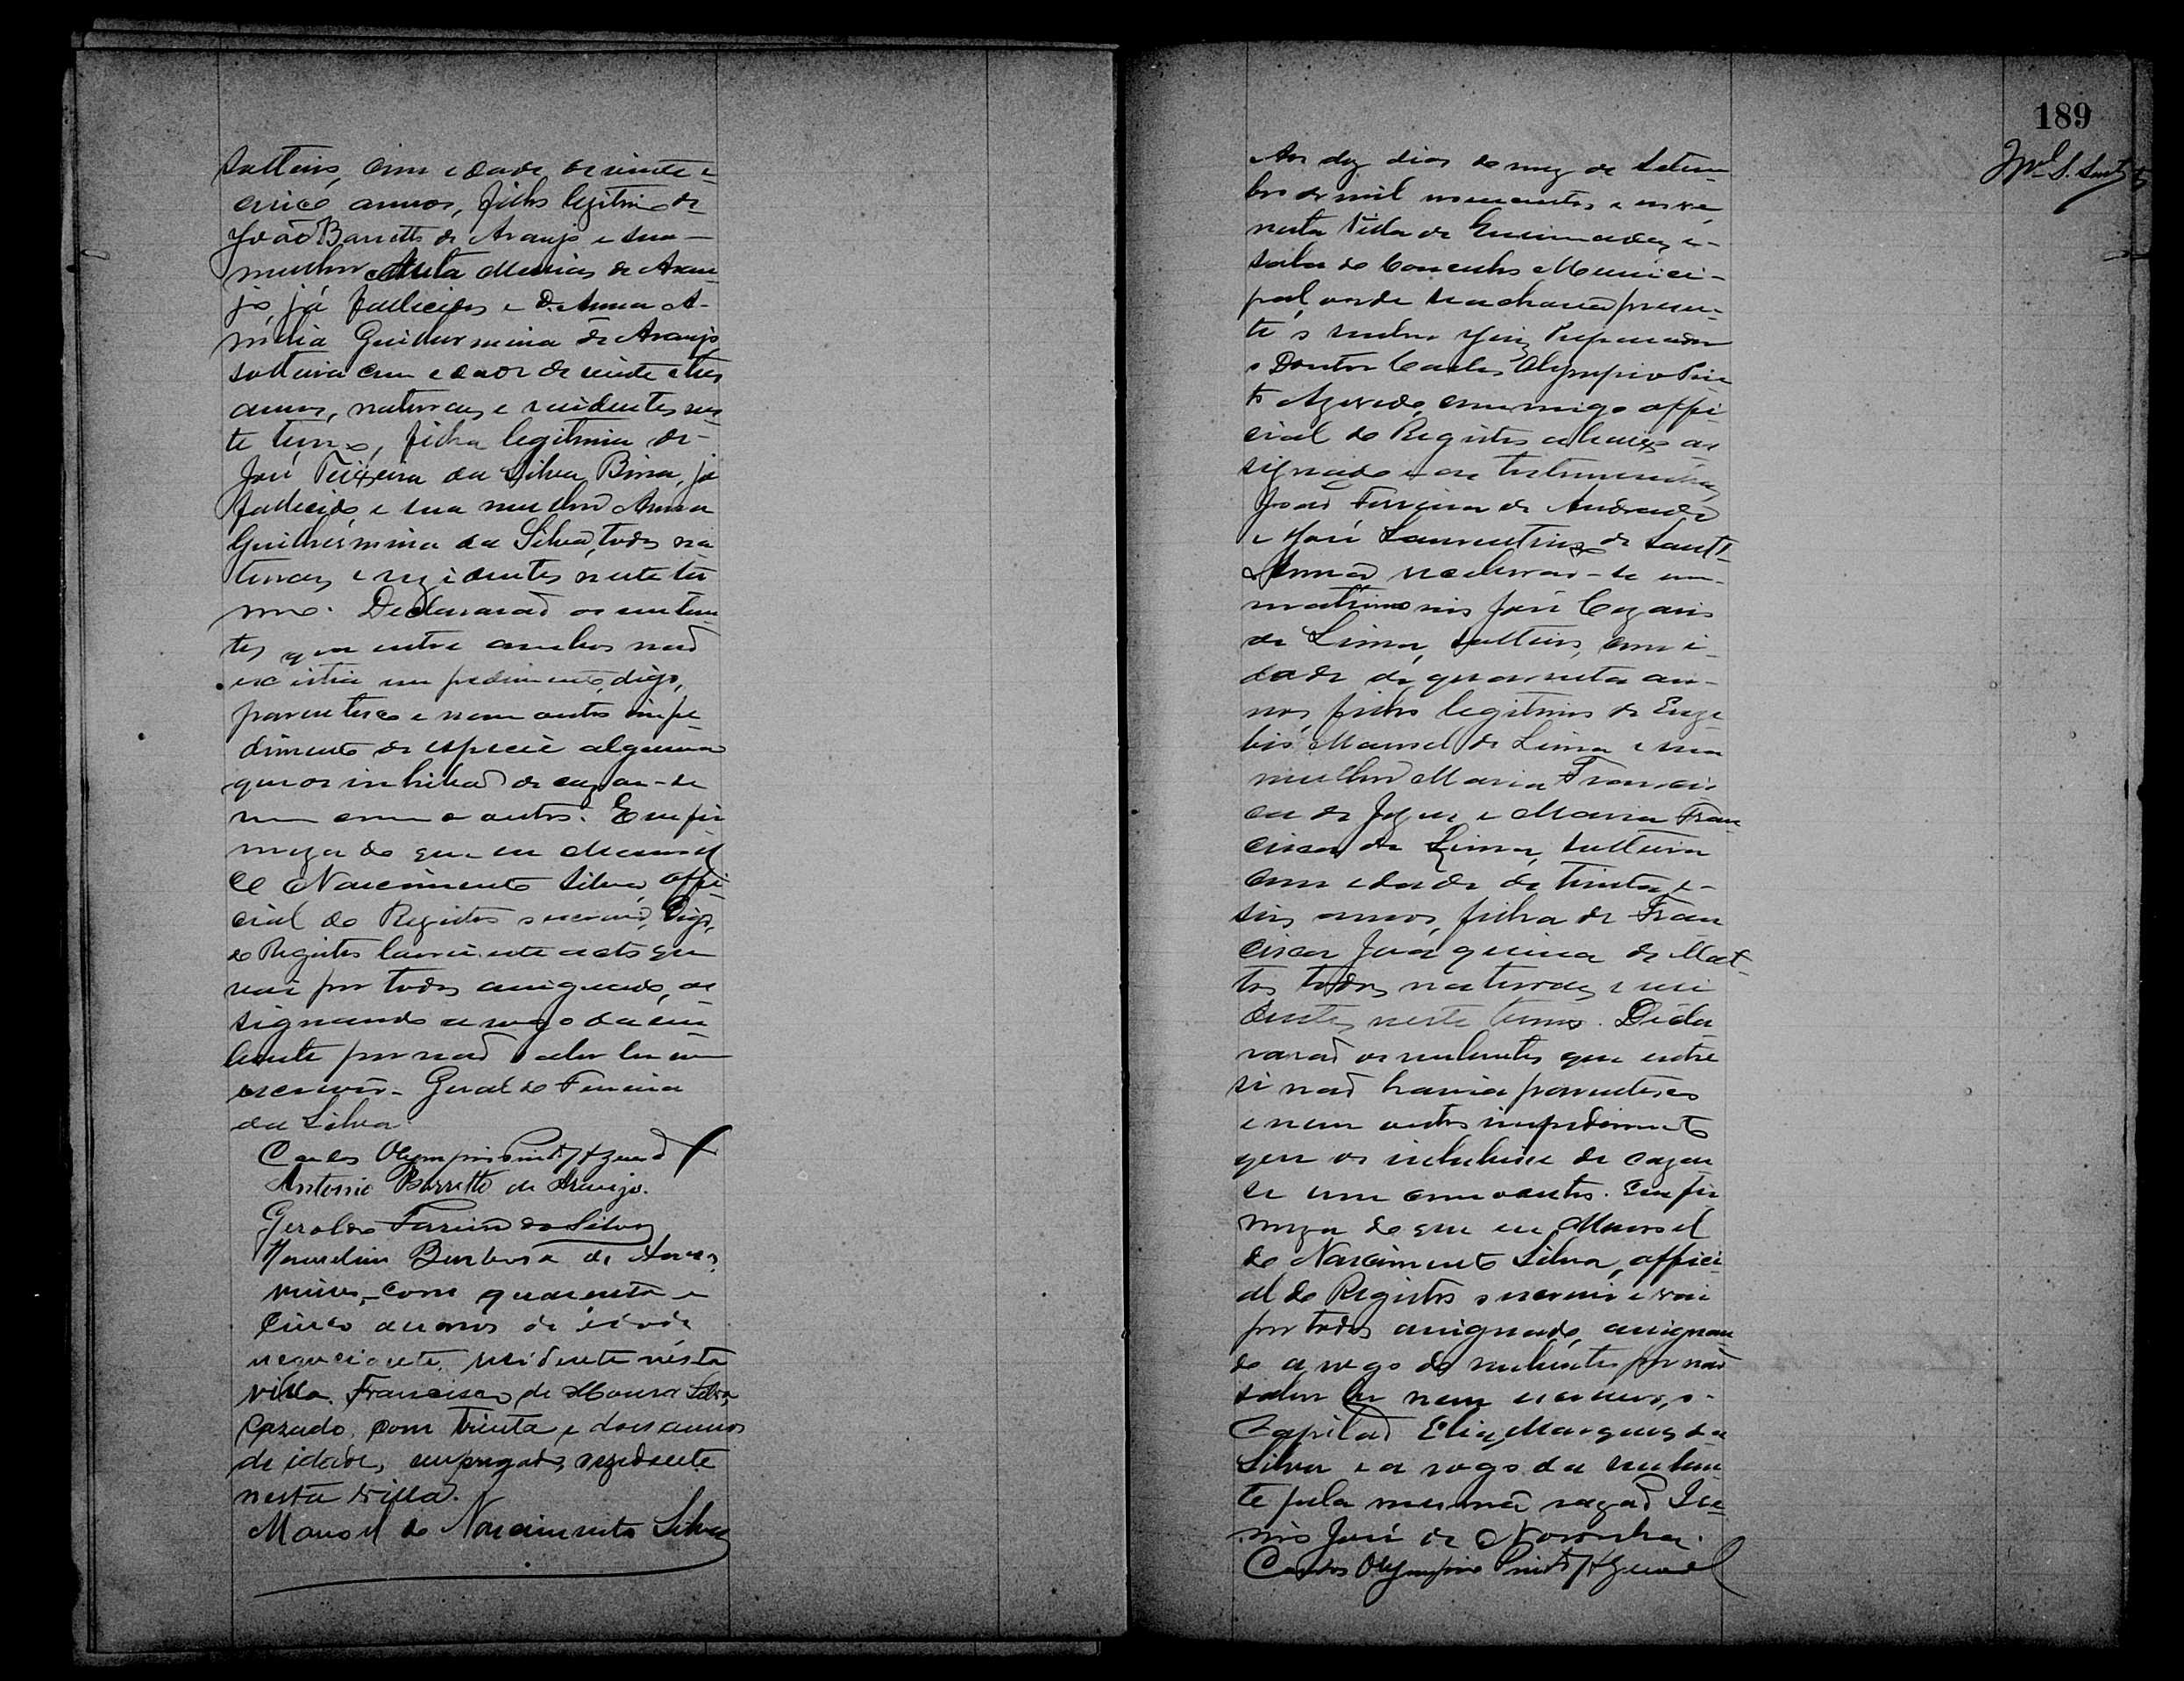 solteiro, com edade de vinte e
cinco annos, filho legitimo de
João Barretto de Araujo e sua
mulher Anta Messias de Arau-
jo, já fallecidos e D. Anna A-
melia Guilhermina de Araujo,
solteira com edade de vinte e tres
annos, naturaes e residentes nes-
te termo, filha legitima de
José Teixeira da Silva Bina, já
fallecido e sua mulher Anna
Guilhermina da Silva, todos na
turaes e rezidentes neste ter
mo. Declararaõ os nuben-
tes que entre ambos naõ
existia impedimento, digo,
parentesco e nem outro impe
dimento de especie alguma
que os inhibaõ de cazar-se
um com o outro. Em fir
meza do que eu Manoel
do Nascimento Silva, offi-
cial do Registro escrevi, digo,
do Registro lavrei este acto que
vai por todos assignado, as
signando a rogo da nu
bente por naõ saber ler nem
escrever - Geraldo Ferreira
da Silva.
Carlos Olympio Pinto Azevedo
Antonio Barretto de Araujo.
Geraldo Ferreira da Silva
Barbosa de
com quarenta e
cinco annos de idade
negociante, residente nésta
villa. Francisco de Moura Silva,
Cazado, com trinta e dois annos
de idade, empregado, rezidente
nesta villa.
Manoel do Nascimento Silva
189
Aos dez dias do mez de Setem-
bro de mil novecentos e nove,
nesta Villa de Queimadas, e
salla do Concelho Munici-
pal, onde se achava presen-
te o senhor Juiz Preparador
o Doutor Carlos Olympio Pin
to Azevedo, commigo offi
cial do Registro abaixo as
signado e as testemunhas
Joaõ Ferreira de Andrade
e José Laurentino de Sant'
Anna receberaõ-se em
matrimonio José Cezario
de Lima, solteiro, com i-
dade de quarenta an-
nos, filho legitimo de Euze
bio Manoel de Lima e sua
mulher Maria Francis
ca de Jezus e Maria Fran
cisca de Lima, solteira
com edade de trinta e
seis annos, filha de Fran
cisca Joaquina de Mat-
tos todos naturaes e resi
dentes neste termo. Decla
raraõ os nubentes que entre
si naõ havia parentesco
e nem outro impedimento
que os inhibisse de cazar
se um com o outro. Em fir
meza do que eu Manoel
do Nascimento Silva, offici
al do Registro o escrevi e vai
por todos assignado, assignan
do a rogo do nubente por naõ
saber ler nem escrever, o
Capitaõ Elias Marques da
Silva e a rogo da nuben
te pela mesma razaõ Ire
nio José de Noronha.
Carlos Olympio Pinto Azevedo